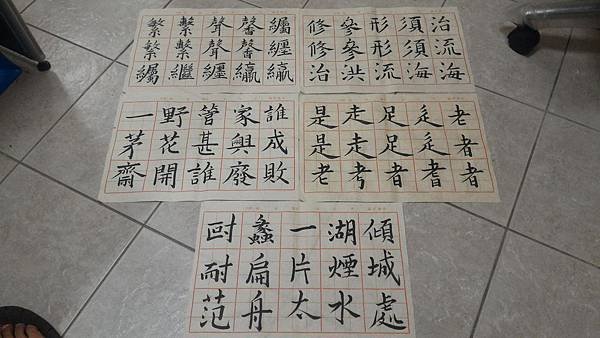 治流海
須須海
形形流
參參洪
修修治
馨馨
聲聲纏
繫繫繼
老者者
辵辵耆
足足者
走走考
是是老
誰成敗
家興廢
管甚誰
野花開
一茅齋
傾城處
湖煙水
一片太
蠡扁舟
耐范